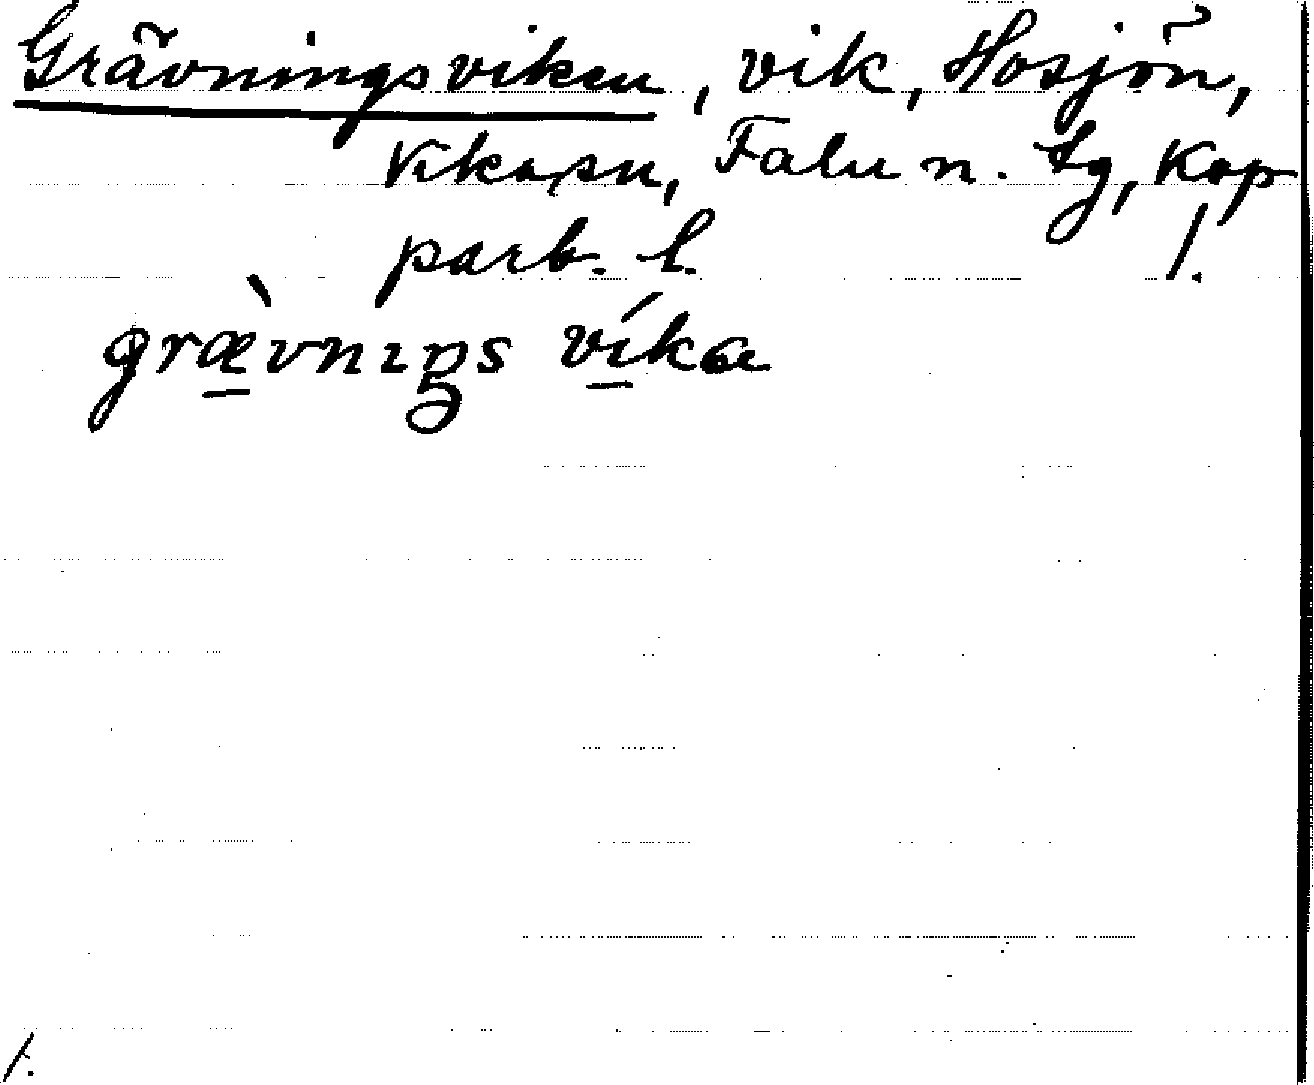 Grävningsviken, vik, Hosjön,
Vika sn, Falu n. tg, Kop
parb. l. /.
græ̠̀vnıŋs ví̠ka
/.